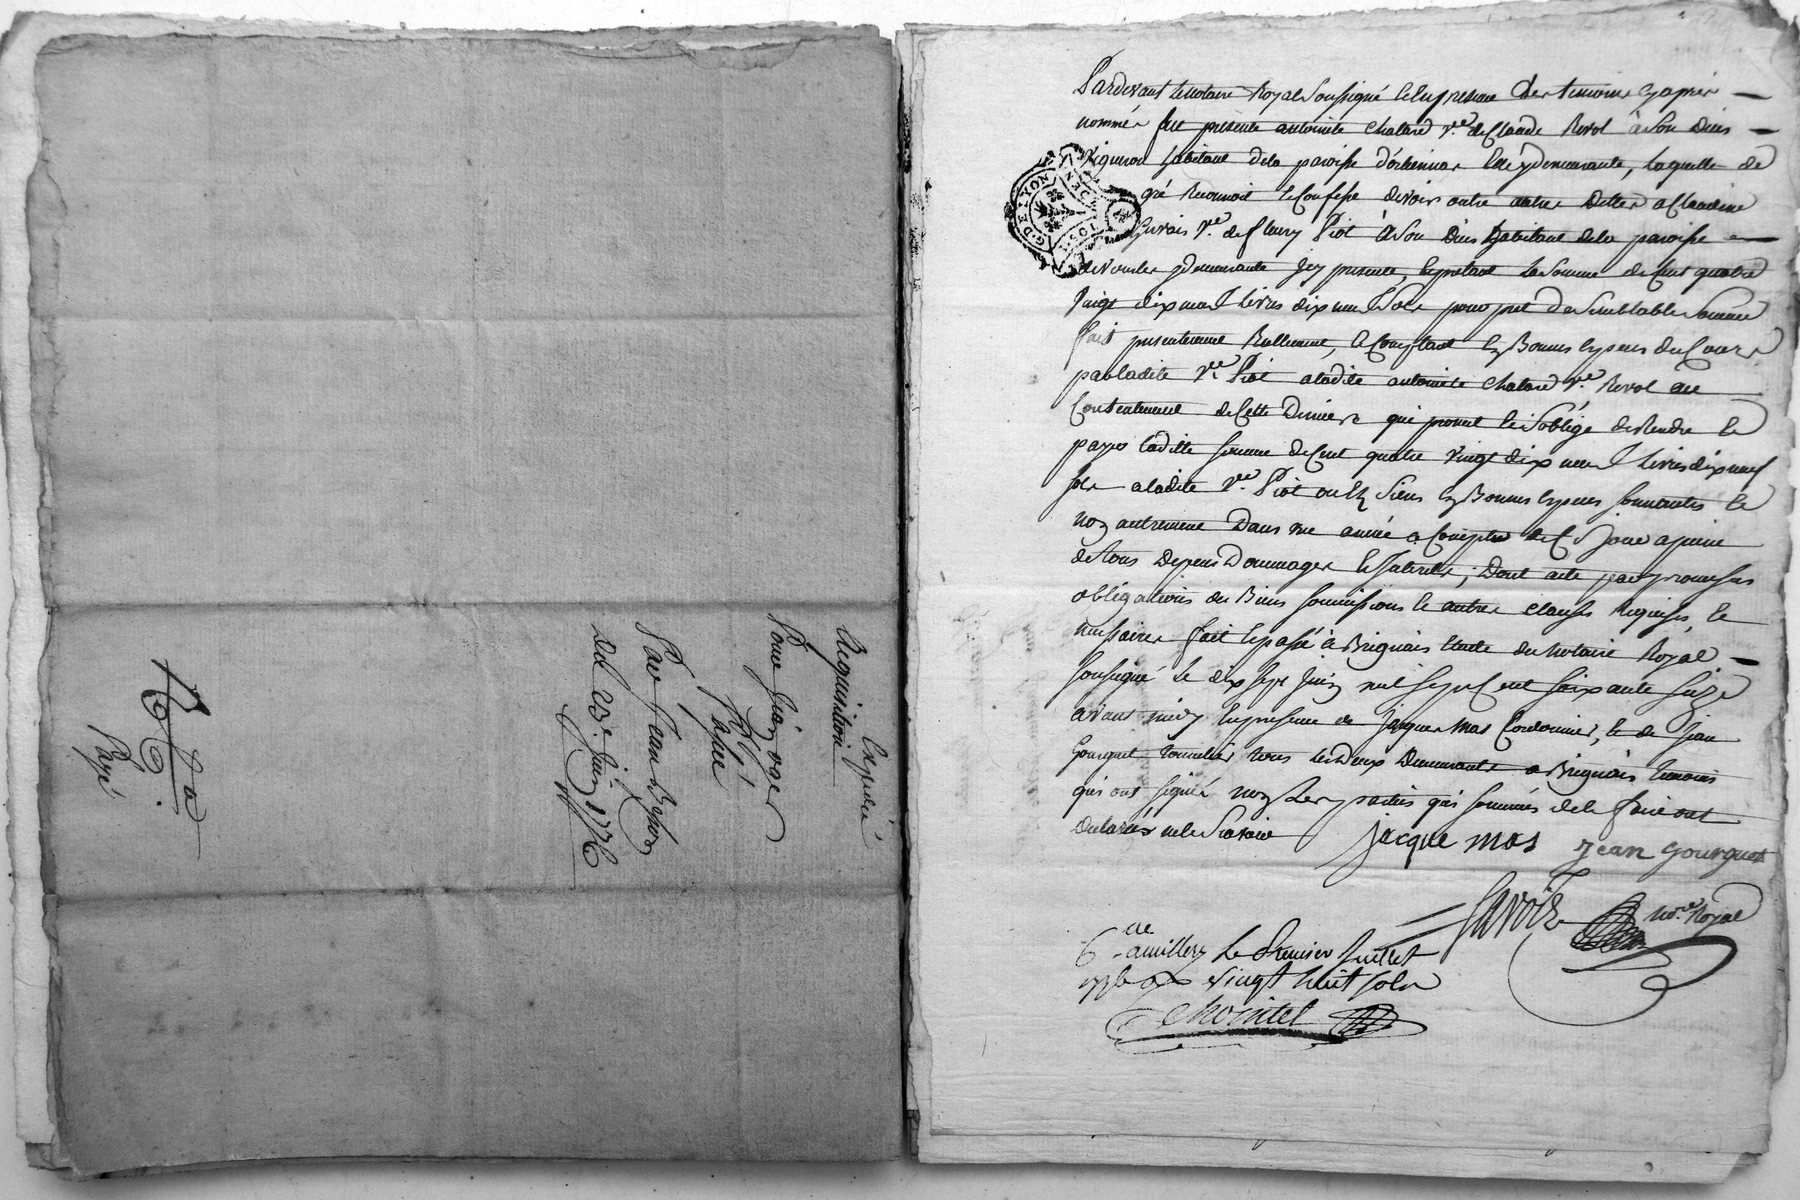 Expedié
Requisition
Pour Jean oger
Payée
Par Jean
del 23.e Juin 1776
Payé
Pardevant le notaire Royal soussigné et en presence des temoins cy apres
nommés fut presente antoinete chatard v.ve de Claude Revol a son vivis
vigneron habitant dela paroisse d'orlienas elle y demeurante, laquelle de
gré reconnoit et confesse devoir outre autres dettes a Claudine
Gervais v.ve de fleury Piot a son vivis habitant dela paroisse
de vourles y demeurante icy presente, acceptant la somme de Cent quatre
vingt dix neuf livres dix neuf sols pour pret de semblable somme
fait presentement reellement, et comptant en bonnes especes du Cours
par ladite v.ve Piot a ladite antoinete chatard v.ve Revol au
Contentement de cette derniere qui promet et s'oblige de rendre et
payer laditte somme de Cent quatre vingt dix neuf livres dix neuf
sols a ladite v.ve Piot ou es siens en bonnes especes sonnantes et
non autrement dans une année a compter de ce jour a peine
de tous depens dommages et interets; Dont acte par promesses
obligations de biens soumissions et autres clauses requises, et
necessaires fait et passé a Brignais etude du notaire Royal
soussigné le dix sept juin mil sept cent soixante seize
avant midy en presence de jacques mas Cordonnier, et de jean
Gourguet tonnelier tous les deux demeurants a Brignais temoins
qui ont signé non les parties qui sommées de le faire ont
declarés ne le scavoir
jacque mas jean gourguet
Savoie no.re Royal
C.lle a millery le premier juillet
1776 Rx vingt huit sols
Chointel
G. DE LYON